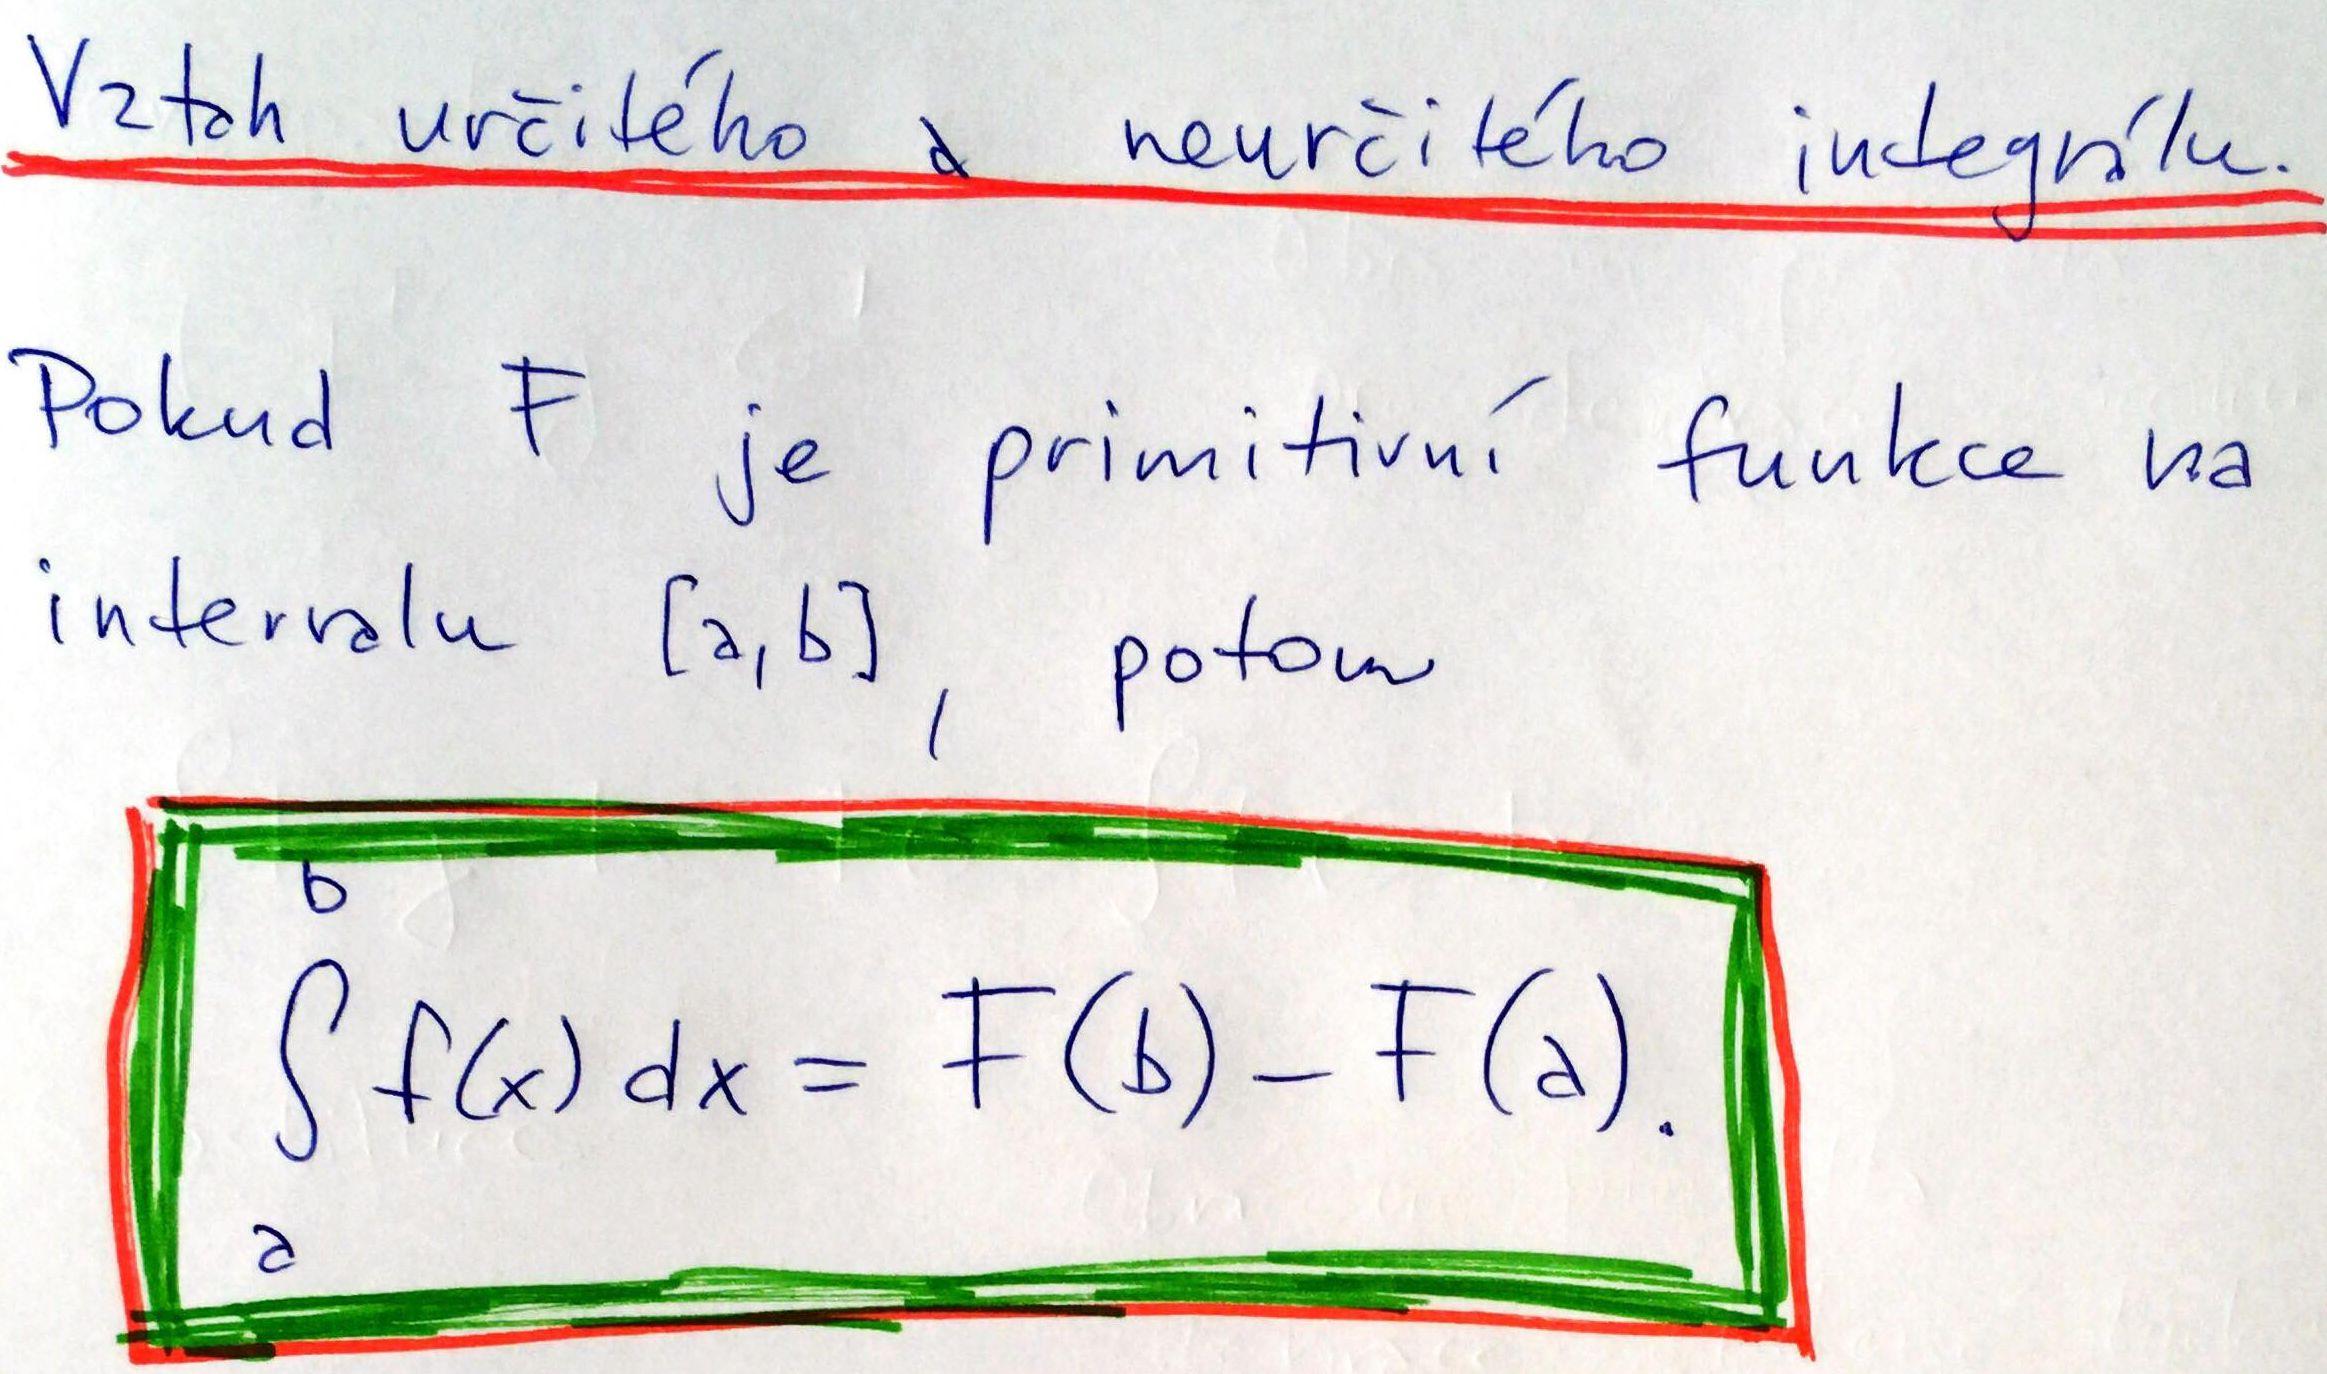 Vztah určitého a neurčitého integrálu.
Pokud F je primitivní funkce na
intervalu [a,b], potom
b
∫ f(x) dx = F(b) - F(a).
a